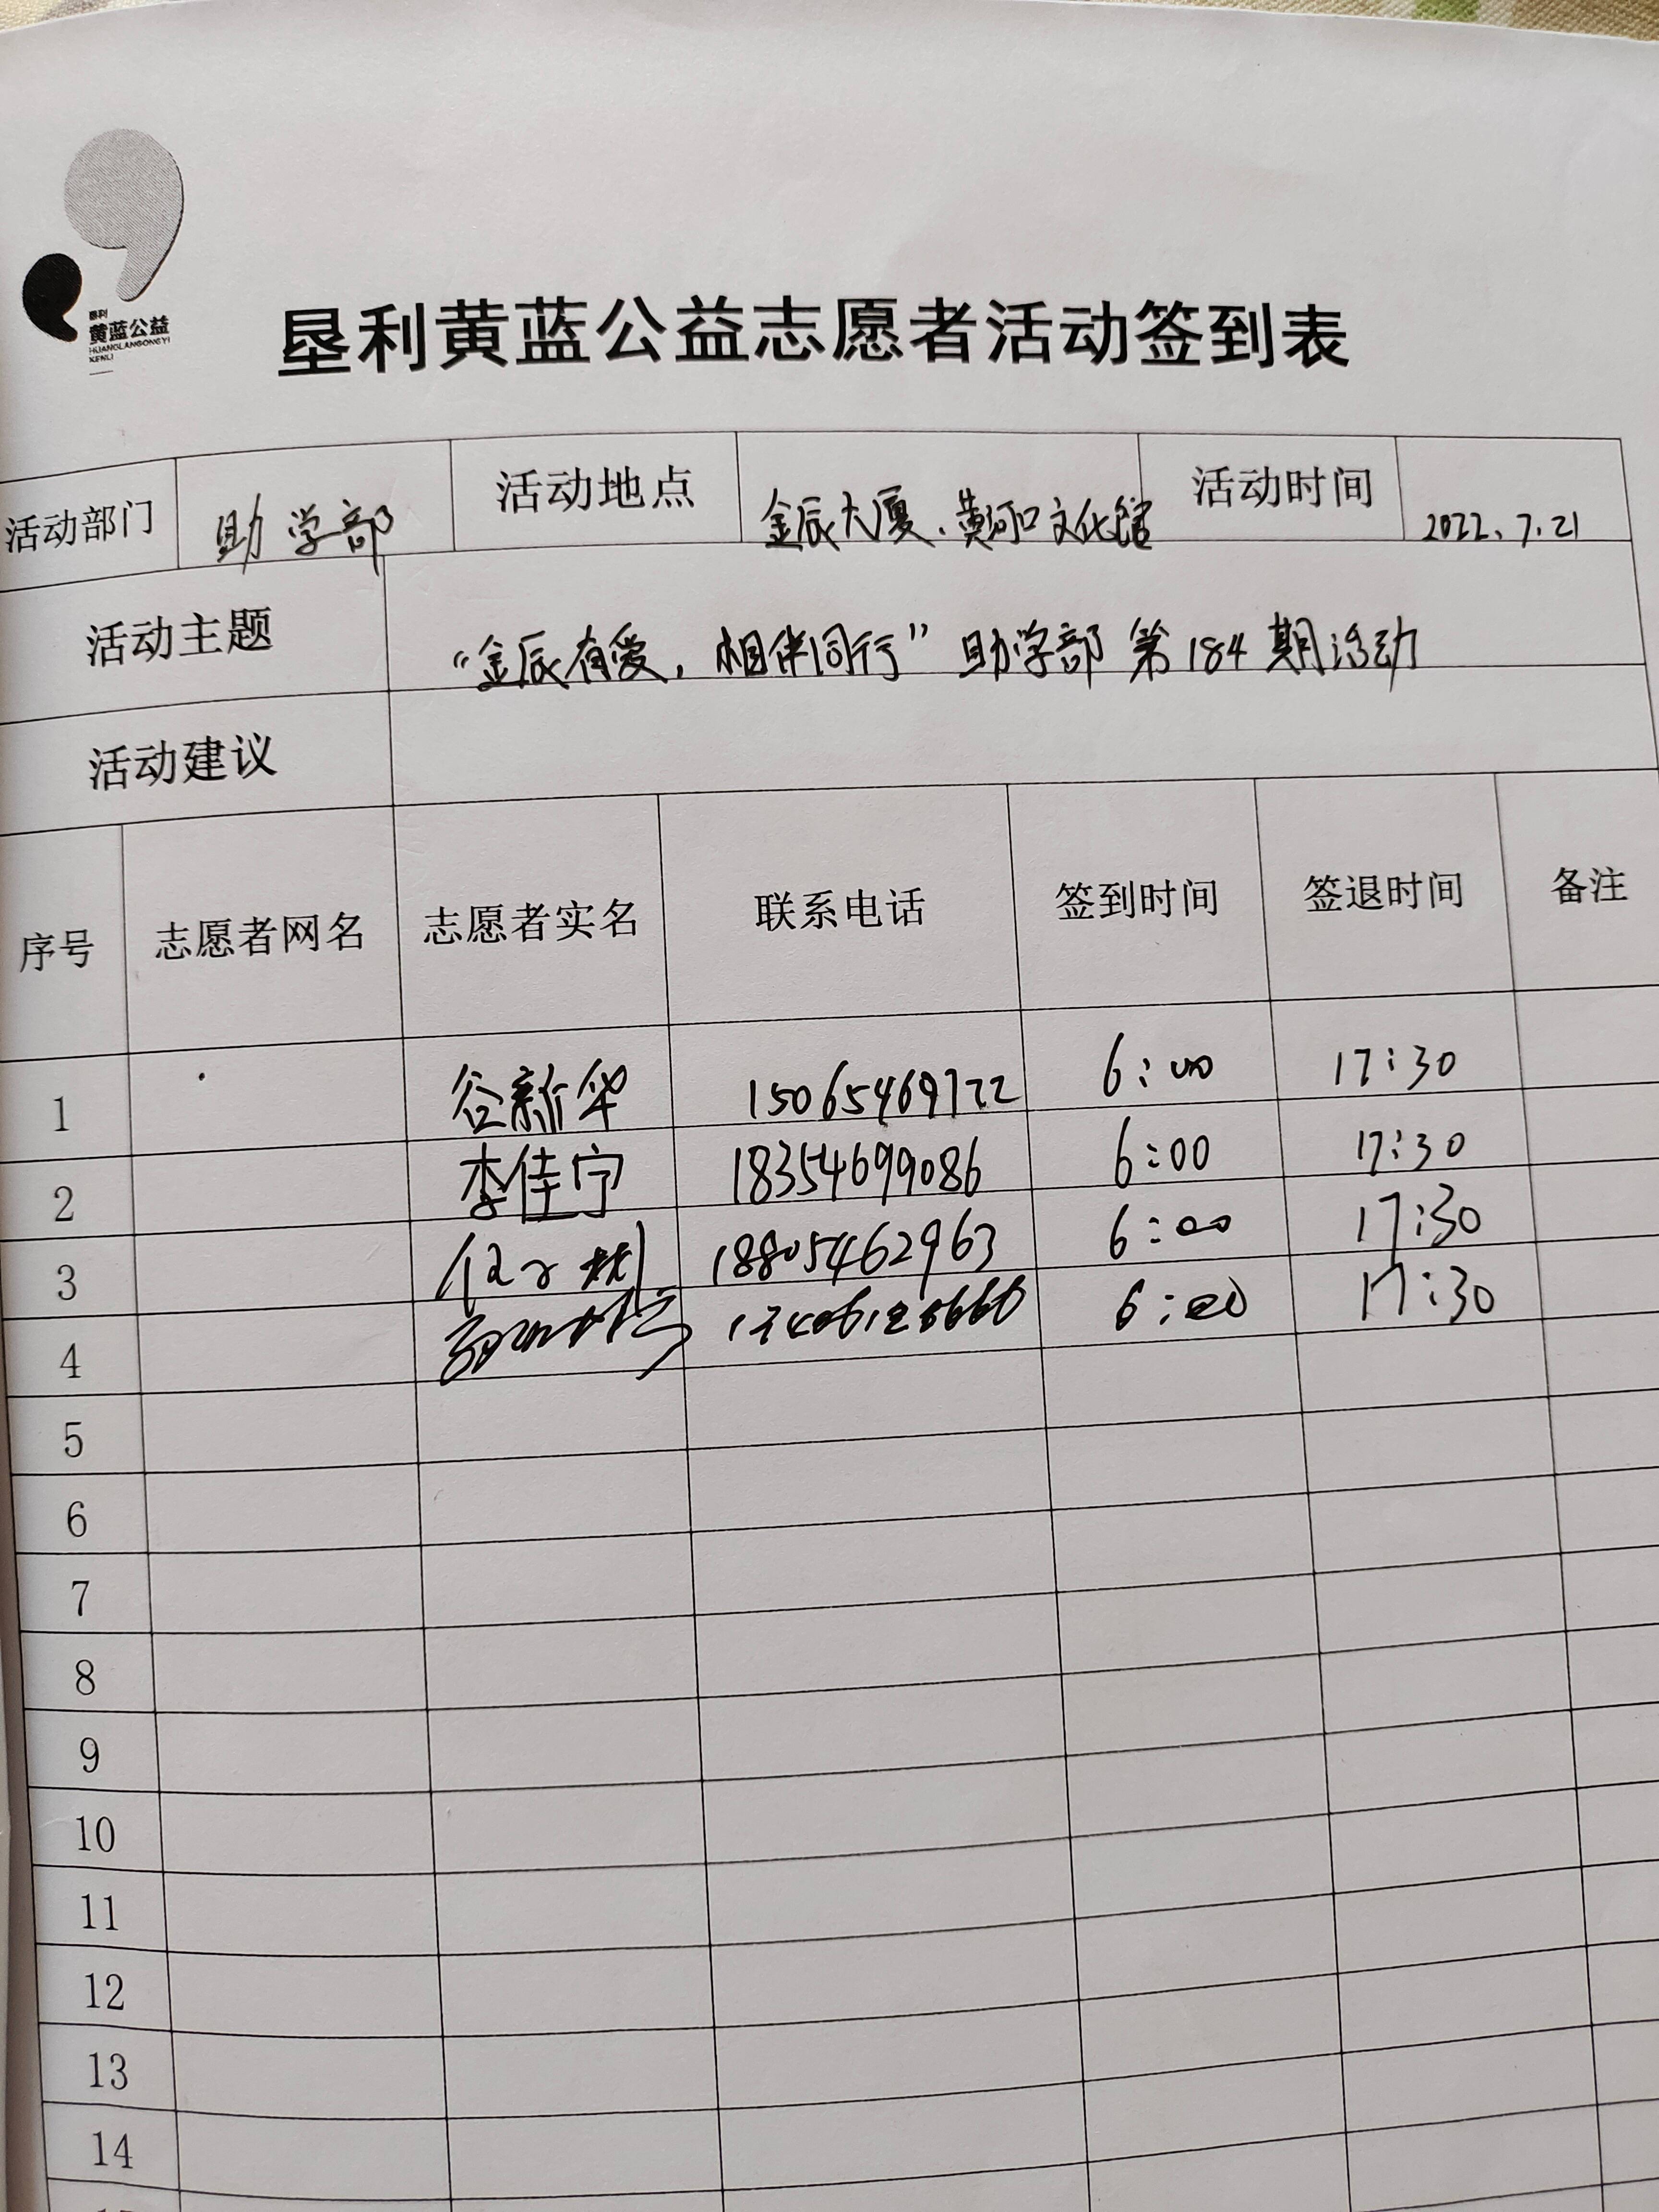 垦利
黄蓝公益
HUANGLANGONGYI
KENLI
垦利黄蓝公益志愿者活动签到表
活动部门 助学部 活动地点 金辰大厦、黄河口文化馆 活动时间 2022、7.21
活动主题 “金辰有爱，相伴同行”助学部第184期活动
活动建议
序号 志愿者网名 志愿者实名 联系电话 签到时间 签退时间 备注
1 谷新华 15065469722 6:00 17:30
2 李佳宁 18354699086 6:00 17:30
3 18805462963 6:00 17:30
4 6:00 17:30
5
6
7
8
9
10
11
12
13
14